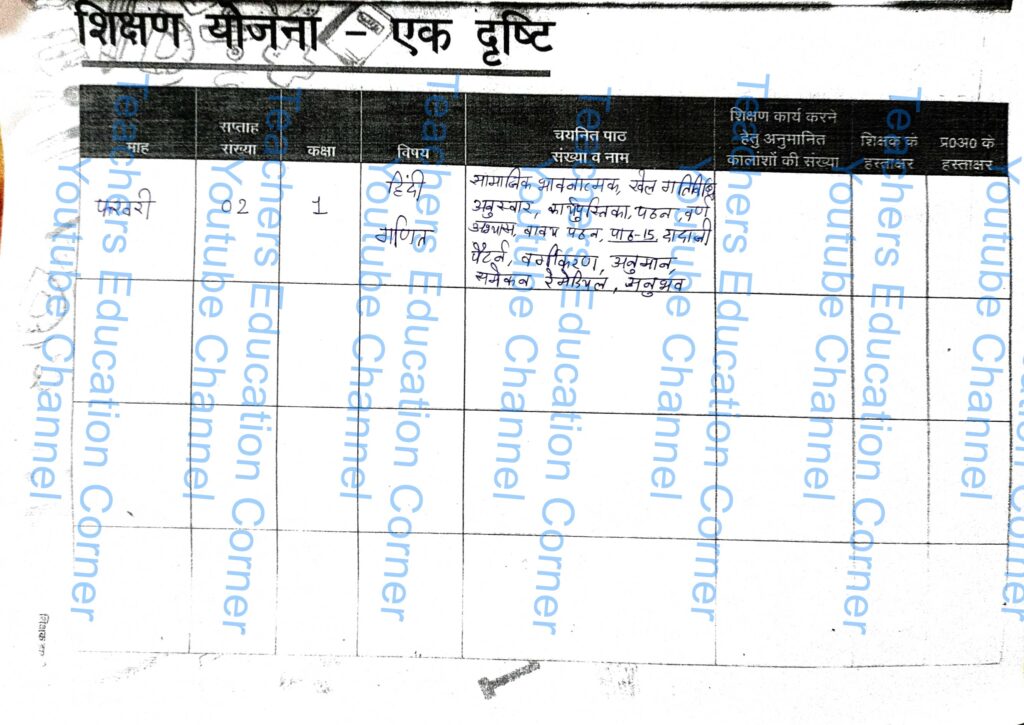 शिक्षण योजना – एक दृष्टि
माह
सप्ताह
संख्या
कक्षा
विषय
चयनित पाठ
संख्या व नाम
शिक्षण कार्य करने
हेतु अनुमानित
कालांशों की संख्या
शिक्षक के
हस्ताक्षर
प्र०अ० के
हस्ताक्षर
फरवरी
02
1
हिंदी
गणित
सामाजिक भावनात्मक, खेल गतिविधि
अनुस्वार, कार्यपुस्तिका, पठन, वर्ण
अभ्यास, वाक्य पठन, पाठ-15, दादाजी
पैटर्न, वर्गीकरण, अनुमान,
समेकन, रेमेडियल, अनुभव
Teachers Education Corner
Youtube Channel
Teachers Education Corner
Youtube Channel
Teachers Education Corner
Youtube Channel
Teachers Education Corner
Youtube Channel
Teachers Education Corner
Youtube Channel
Teachers Education Corner
Youtube Channel